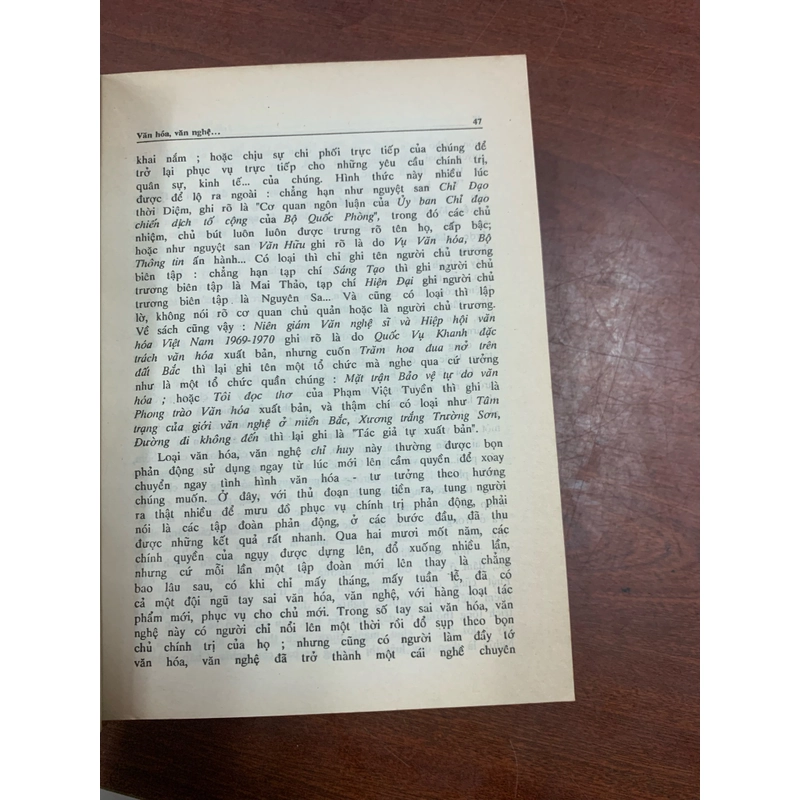 Văn hóa, văn nghệ... 47
khai nấm ; hoặc chịu sự chi phối trực tiếp của chúng để
trở lại phục vụ trực tiếp cho những yêu cầu chính trị,
quân sự, kinh tế... của chúng. Hình thức này nhiều lúc
được để lộ ra ngoài : chẳng hạn như nguyệt san Chỉ Đạo
thời Diệm, ghi rõ là "Cơ quan ngôn luận của Ủy ban Chỉ đạo
chiến dịch tố cộng của Bộ Quốc Phòng", trong đó các chủ
nhiệm, chủ bút luôn luôn được trưng rõ tên họ, cấp bậc;
hoặc như nguyệt san Văn Hữu ghi rõ là do Vụ Văn hóa, Bộ
Thông tin ấn hành... Có loại thì chỉ ghi tên người chủ trương
biên tập : chẳng hạn tạp chí Sáng Tạo thì ghi người chủ
trương biên tập là Mai Thảo, tạp chí Hiện Đại ghi người chủ
trương biên tập là Nguyên Sa... Và cũng có loại thì lập
lờ, không nói rõ cơ quan chủ quản hoặc là người chủ trương.
Về sách cũng vậy : Niên giám Văn nghệ sĩ và Hiệp hội văn
hóa Việt Nam 1969-1970 ghi rõ là do Quốc Vụ Khanh đặc
trách văn hóa xuất bản, nhưng cuốn Trăm hoa đua nở trên
đất Bắc thì lại ghi tên một tổ chức mà nghe qua cứ tưởng
như là một tổ chức quần chúng : Mặt trận Bảo vệ tự do văn
hóa ; hoặc Tôi đọc thơ của Phạm Việt Tuyền thì ghi là
Phong trào Văn hóa xuất bản, và thậm chí có loại như Tâm
trạng của giới văn nghệ ở miền Bắc, Xương trắng Trường Sơn,
Đường đi không đến thì lại ghi là "Tác giả tự xuất bản".
Loại văn hóa, văn nghệ chỉ huy này thường được bọn
phản động sử dụng ngay từ lúc mới lên cầm quyền để xoay
chuyển ngay tình hình văn hóa - tư tưởng theo hướng
chúng muốn. Ở đây, với thủ đoạn tung tiền ra, tung người
ra thật nhiều để mưu đồ phục vụ chính trị phản động, phải
nói là các tập đoàn phản động, ở các bước đầu, đã thu
được những kết quả rất nhanh. Qua hai mươi mốt năm, các
chính quyền của ngụy được dựng lên, đổ xuống nhiều lần,
nhưng cứ mỗi lần một tập đoàn mới lên thay là chẳng
bao lâu sau, có khi chỉ mấy tháng, mấy tuần lễ, đã có
cả một đội ngũ tay sai văn hóa, văn nghệ, với hàng loạt tác
phẩm mới, phục vụ cho chủ mới. Trong số tay sai văn hóa, văn
nghệ này có người chỉ nổi lên một thời rồi đổ sụp theo bọn
chủ chính trị của họ ; nhưng cũng có người làm đầy tớ
văn hóa, văn nghệ đã trở thành một cái nghề chuyên